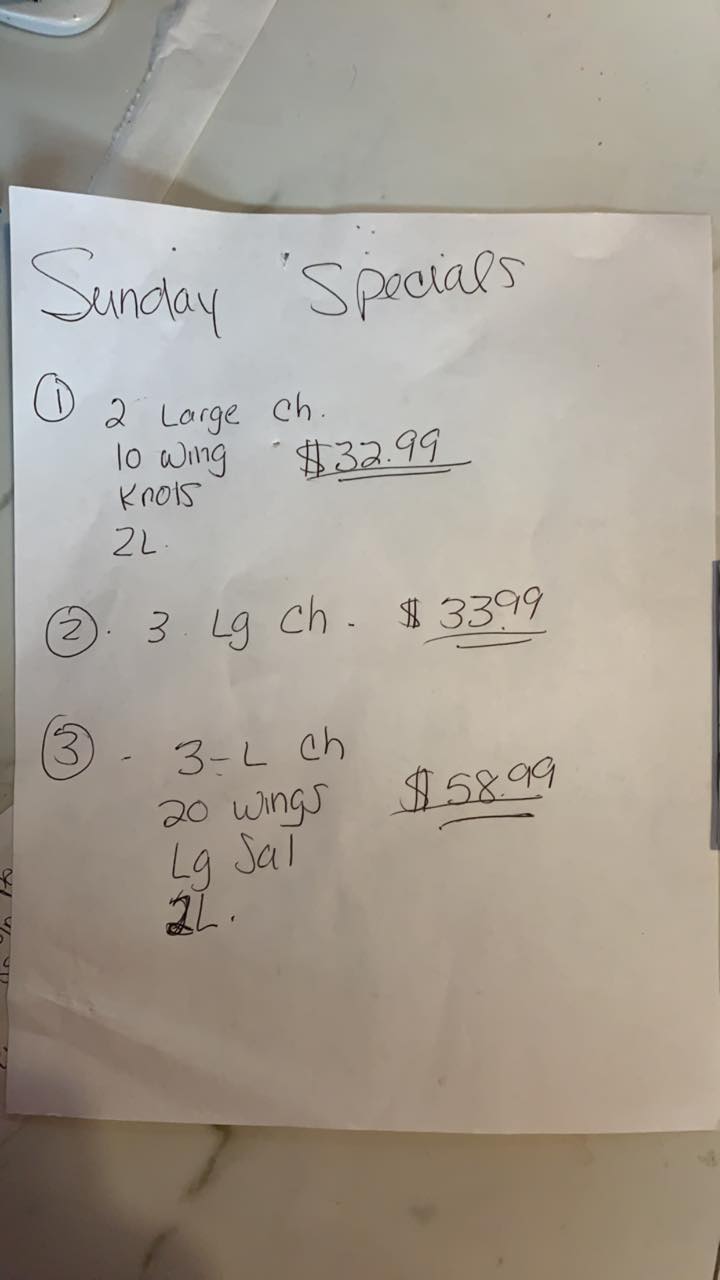 Sunday Specials
① 2 Large ch.
10 wing $32.99
Knots
2L.
②. 3 Lg ch. $33.99
③ - 3-L ch
20 wings $58.99
Lg Sal
2L.